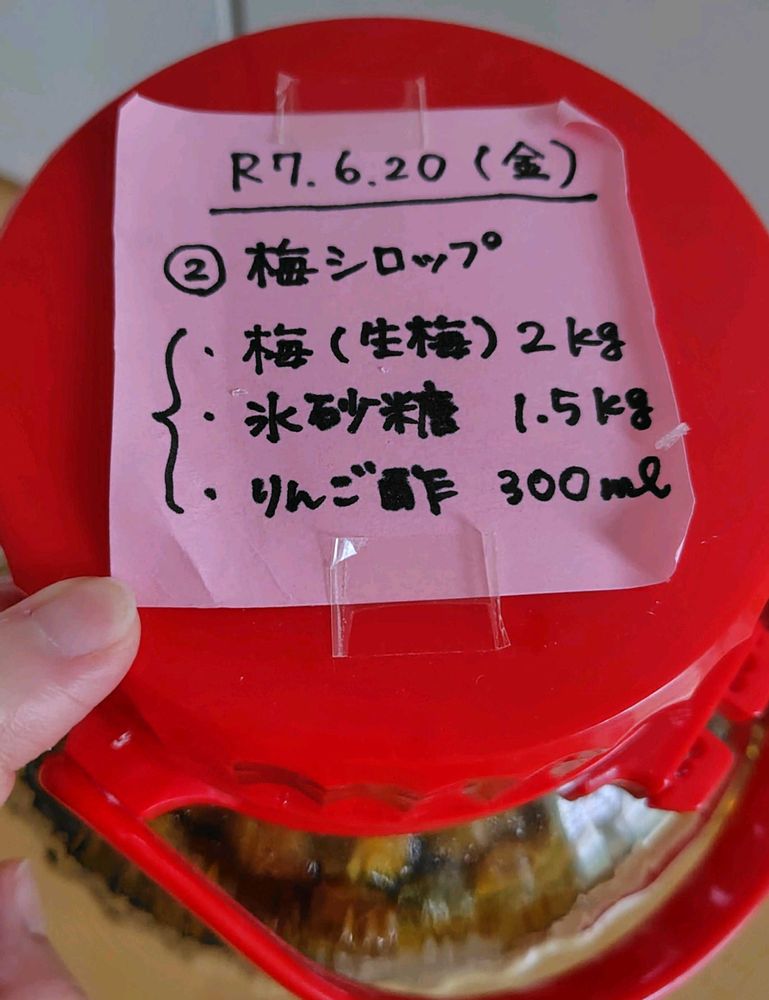 R7.6.20(金)
② 梅シロップ
・梅(生梅) 2kg
・氷砂糖 1.5kg
・りんご酢 300ml